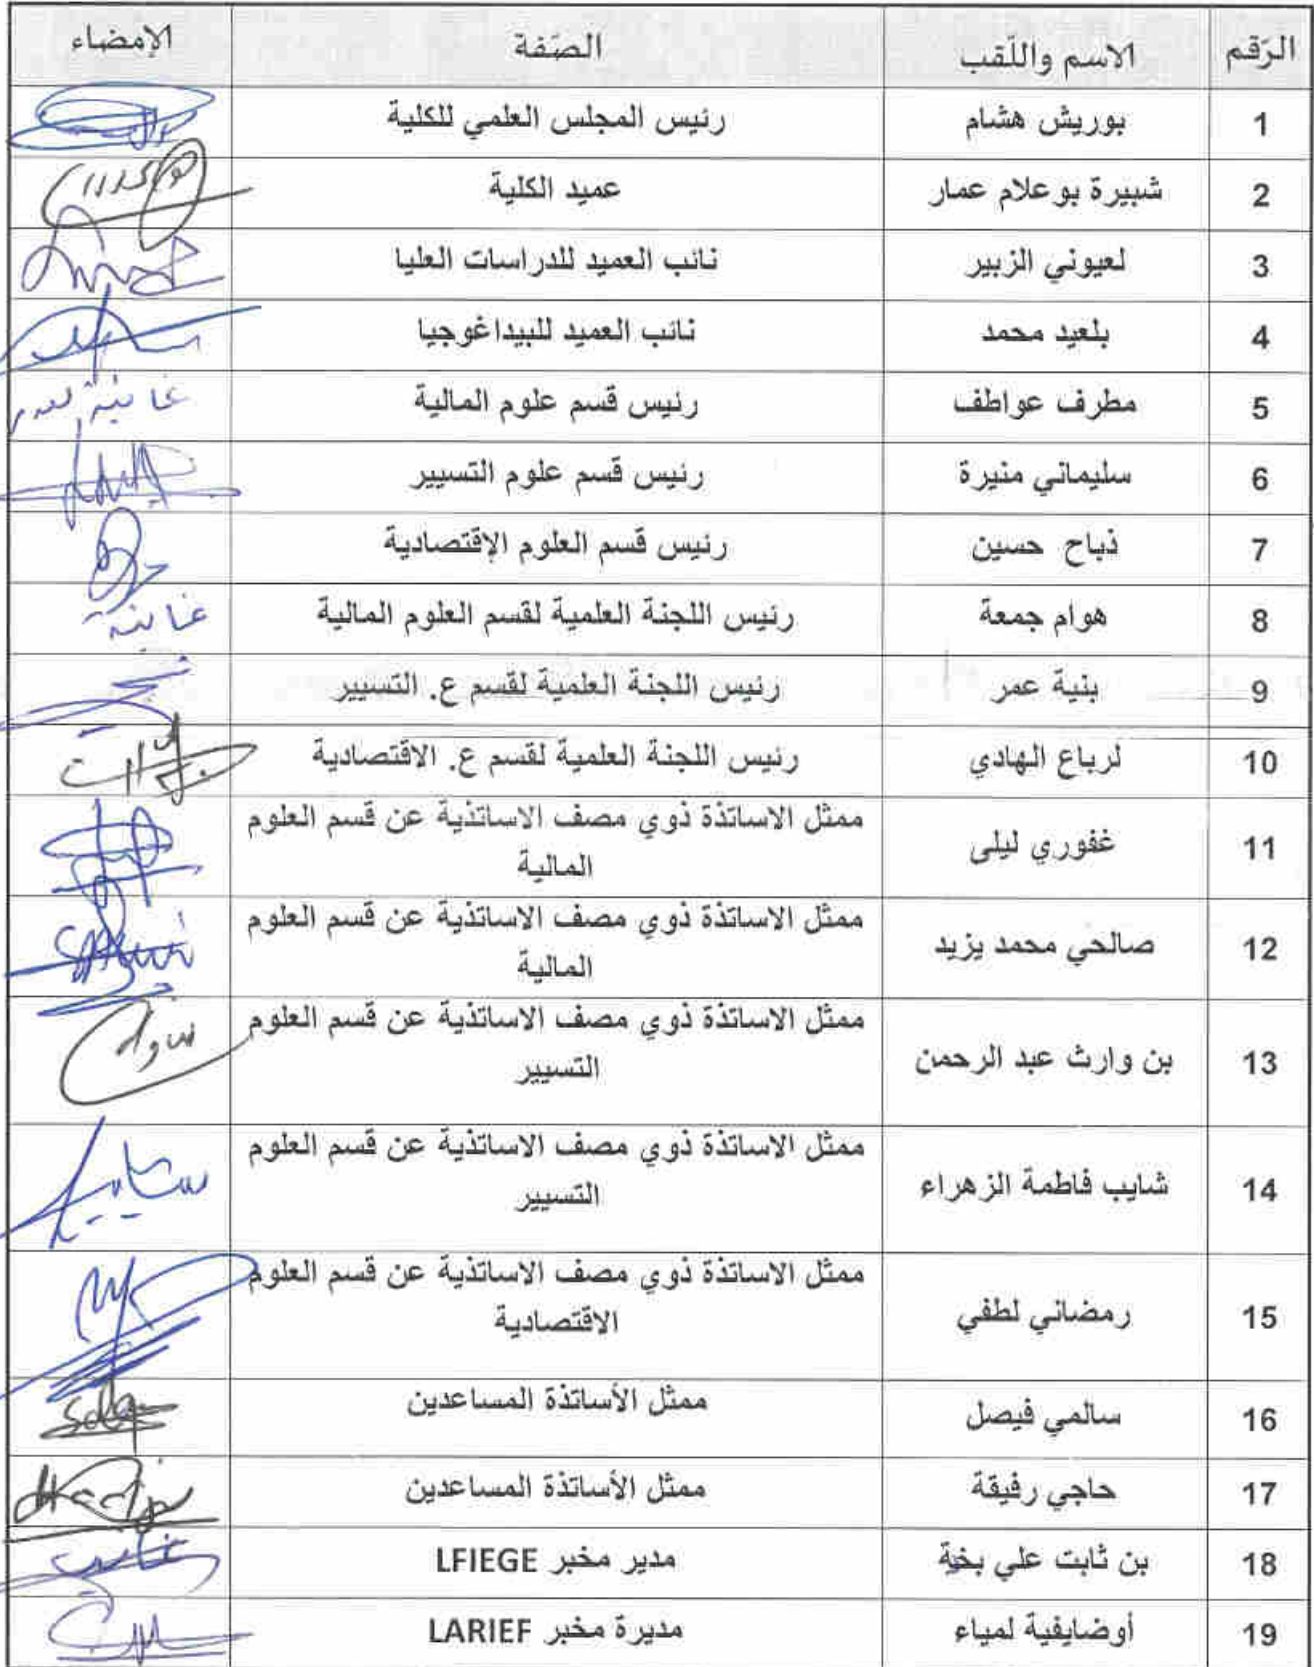 الرّقم الاسم واللّقب الصّفة الإمضاء
1 بوريش هشام رئيس المجلس العلمي للكلية
2 شبيرة بوعلام عمار عميد الكلية
3 لعيوني الزبير نائب العميد للدراسات العليا
4 بلعيد محمد نائب العميد للبيداغوجيا
5 مطرف عواطف رئيس قسم علوم المالية غائبة
6 سليماني منيرة رئيس قسم علوم التسيير
7 ذباح حسين رئيس قسم العلوم الإقتصادية
8 هوام جمعة رئيس اللجنة العلمية لقسم العلوم المالية غائبة
9 بنية عمر رئيس اللجنة العلمية لقسم ع. التسيير
10 لرباع الهادي رئيس اللجنة العلمية لقسم ع. الاقتصادية
11 غفوري ليلى ممثل الاساتذة ذوي مصف الاساتذية عن قسم العلوم
المالية
12 صالحي محمد يزيد ممثل الاساتذة ذوي مصف الاساتذية عن قسم العلوم
المالية
13 بن وارث عبد الرحمن ممثل الاساتذة ذوي مصف الاساتذية عن قسم العلوم
التسيير
14 شايب فاطمة الزهراء ممثل الاساتذة ذوي مصف الاساتذية عن قسم العلوم
التسيير
15 رمضاني لطفي ممثل الاساتذة ذوي مصف الاساتذية عن قسم العلوم
الاقتصادية
16 سالمي فيصل ممثل الأساتذة المساعدين
17 حاجي رفيقة ممثل الأساتذة المساعدين
18 بن ثابت علي بخية مدير مخبر LFIEGE
19 أوضايفية لمياء مديرة مخبر LARIEF